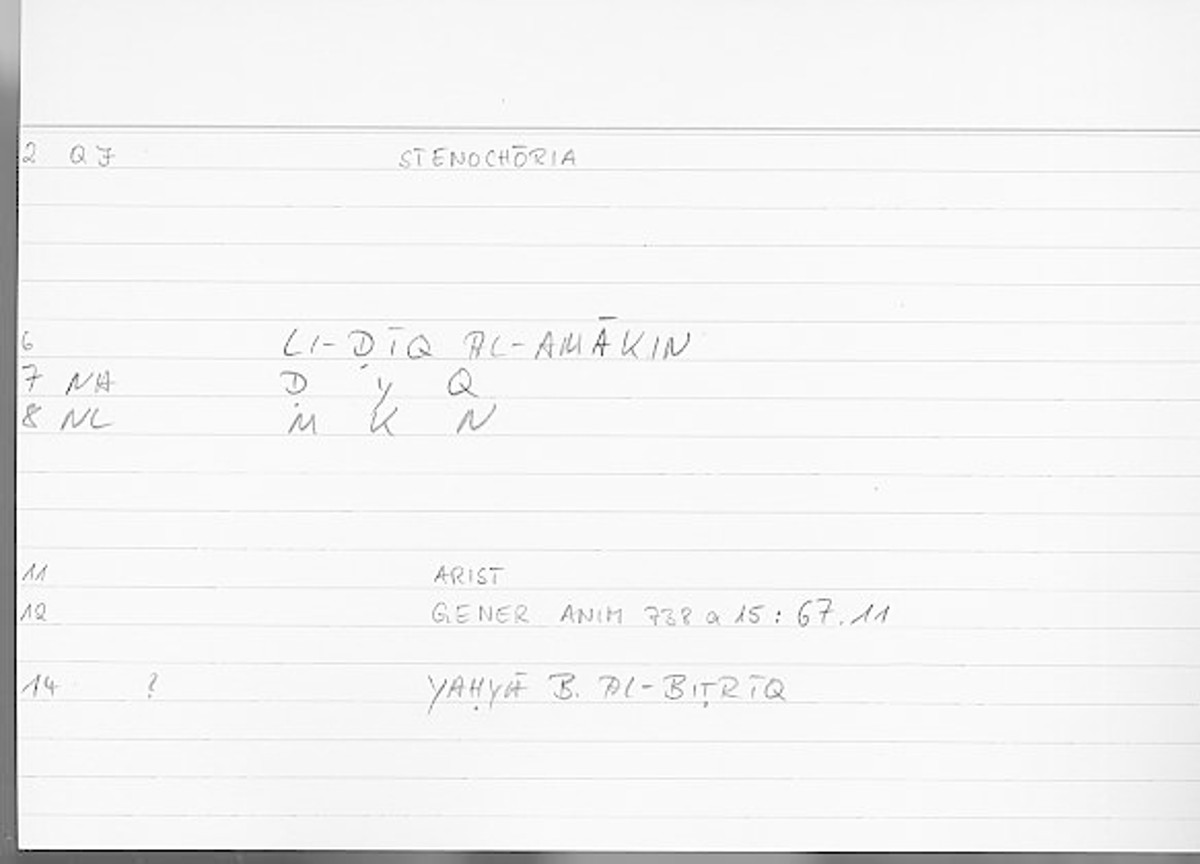 2 QF STENOCHŌRIA
6 LI-ḌĪQ AL-AMĀKIN
7 NA Ḍ Y Q
8 NL M K N
11 ARIST
12 GENER ANIM 738 a 15 : 67.11
14 ? YAḤYĀ B. AL-BIṬRĪQ